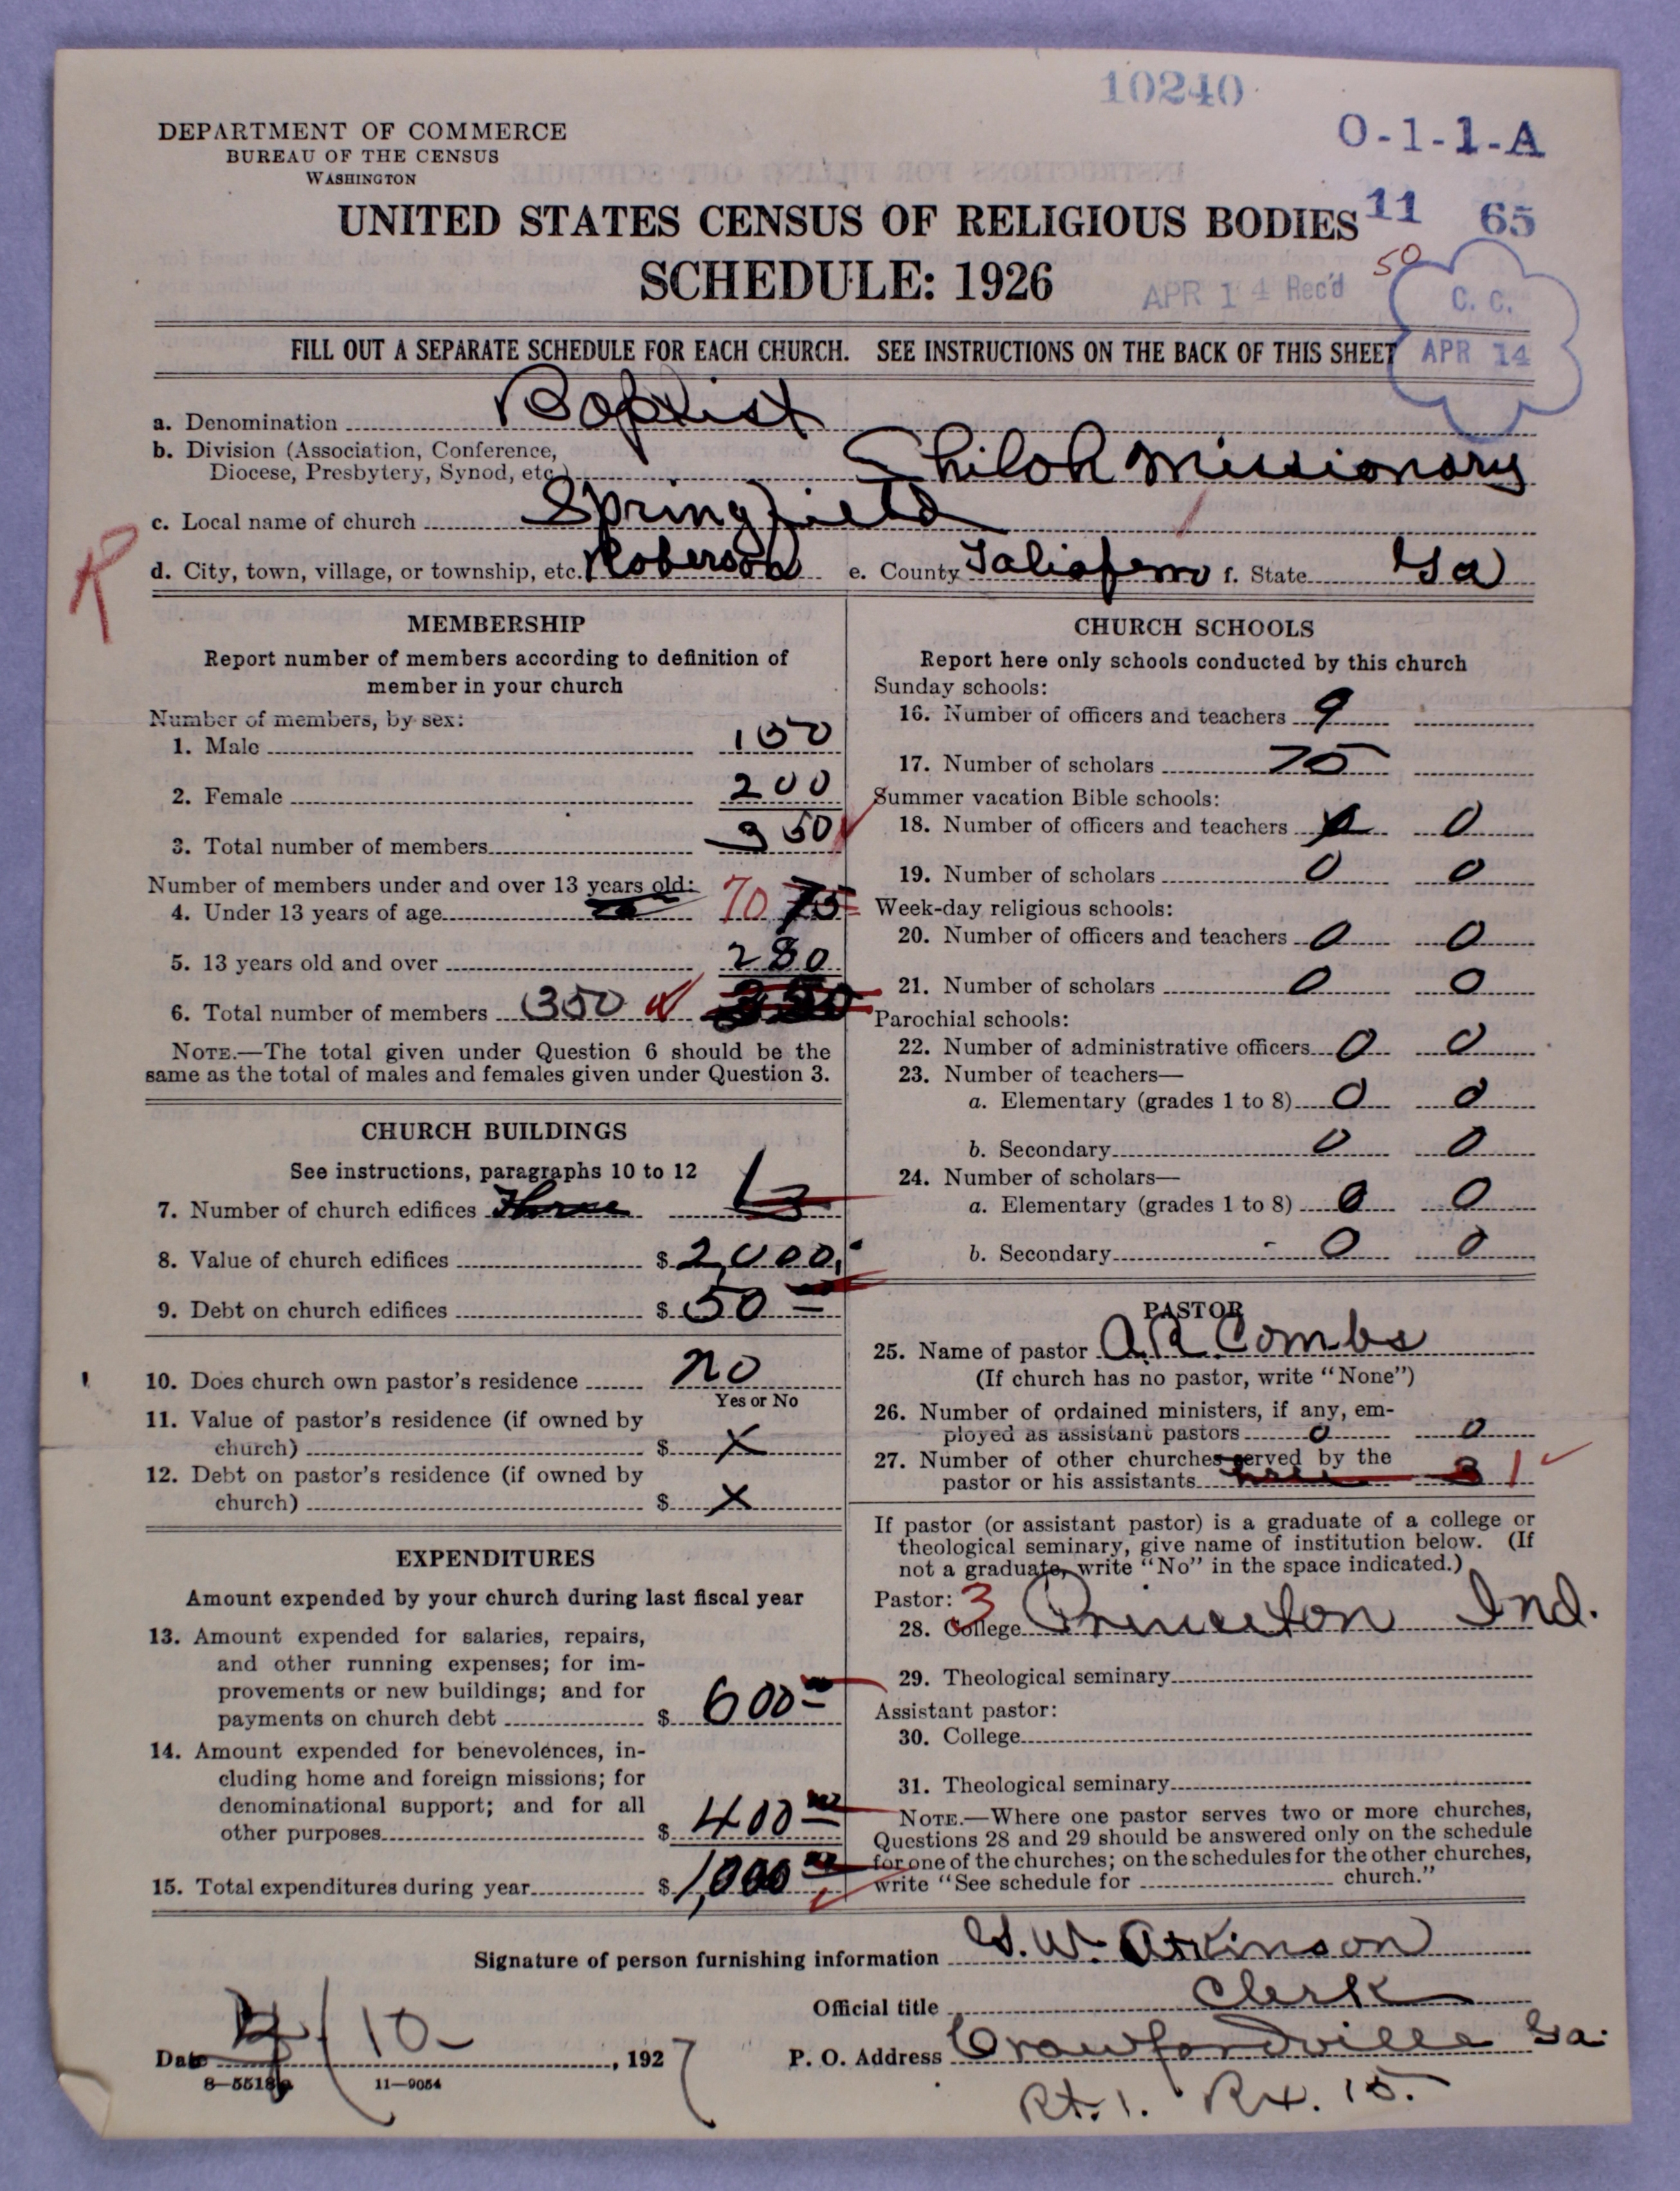 10240
DEPARTMENT OF COMMERCE
BUREAU OF THE CENSUS
WASHINGTON
O-1-1-A
UNITED STATES CENSUS OF RELIGIOUS BODIES
11 65
50
SCHEDULE: 1926
APR 14 Rec'd
C. C.
APR 14
FILL OUT A SEPARATE SCHEDULE FOR EACH CHURCH. SEE INSTRUCTIONS ON THE BACK OF THIS SHEET
a. Denomination Baptist
b. Division (Association, Conference,
Diocese, Presbytery, Synod, etc.) Shiloh Missionary
c. Local name of church Springfield
R
d. City, town, village, or township, etc. Roberson e. County Taliaferro f. State Ga
MEMBERSHIP
Report number of members according to definition of
member in your church
Number of members, by sex:
1. Male 150
2. Female 200
3. Total number of members 350
Number of members under and over 13 years old:
4. Under 13 years of age 70 75
5. 13 years old and over 280
6. Total number of members 350 350
NOTE.—The total given under Question 6 should be the
same as the total of males and females given under Question 3.
CHURCH BUILDINGS
See instructions, paragraphs 10 to 12
7. Number of church edifices Three 1 3
8. Value of church edifices $ 2,000.
9. Debt on church edifices $ 50
10. Does church own pastor's residence no
Yes or No
11. Value of pastor's residence (if owned by
church) $ X
12. Debt on pastor's residence (if owned by
church) $ X
EXPENDITURES
Amount expended by your church during last fiscal year
13. Amount expended for salaries, repairs,
and other running expenses; for im-
provements or new buildings; and for
payments on church debt $ 600
14. Amount expended for benevolences, in-
cluding home and foreign missions; for
denominational support; and for all
other purposes $ 400
15. Total expenditures during year $ 1,000
CHURCH SCHOOLS
Report here only schools conducted by this church
Sunday schools:
16. Number of officers and teachers 9
17. Number of scholars 75
Summer vacation Bible schools:
18. Number of officers and teachers 0
19. Number of scholars 0 0
Week-day religious schools:
20. Number of officers and teachers 0 0
21. Number of scholars 0 0
Parochial schools:
22. Number of administrative officers 0 0
23. Number of teachers—
a. Elementary (grades 1 to 8) 0 0
b. Secondary 0 0
24. Number of scholars—
a. Elementary (grades 1 to 8) 0 0
b. Secondary 0 0
PASTOR
25. Name of pastor A.R. Combs
(If church has no pastor, write "None")
26. Number of ordained ministers, if any, em-
ployed as assistant pastors 0 0
27. Number of other churches served by the
pastor or his assistants 3 1
If pastor (or assistant pastor) is a graduate of a college or
theological seminary, give name of institution below. (If
not a graduate, write "No" in the space indicated.)
Pastor: 3
28. College Princeton Ind.
29. Theological seminary
Assistant pastor:
30. College
31. Theological seminary
NOTE.—Where one pastor serves two or more churches,
Questions 28 and 29 should be answered only on the schedule
for one of the churches; on the schedules for the other churches,
write "See schedule for church."
Signature of person furnishing information G. W. Atkinson
Official title Clerk
Date 4/10- , 1927
P. O. Address Crawfordville Ga.
8-5518
11-9054
Rt. 1. Bx. 15.